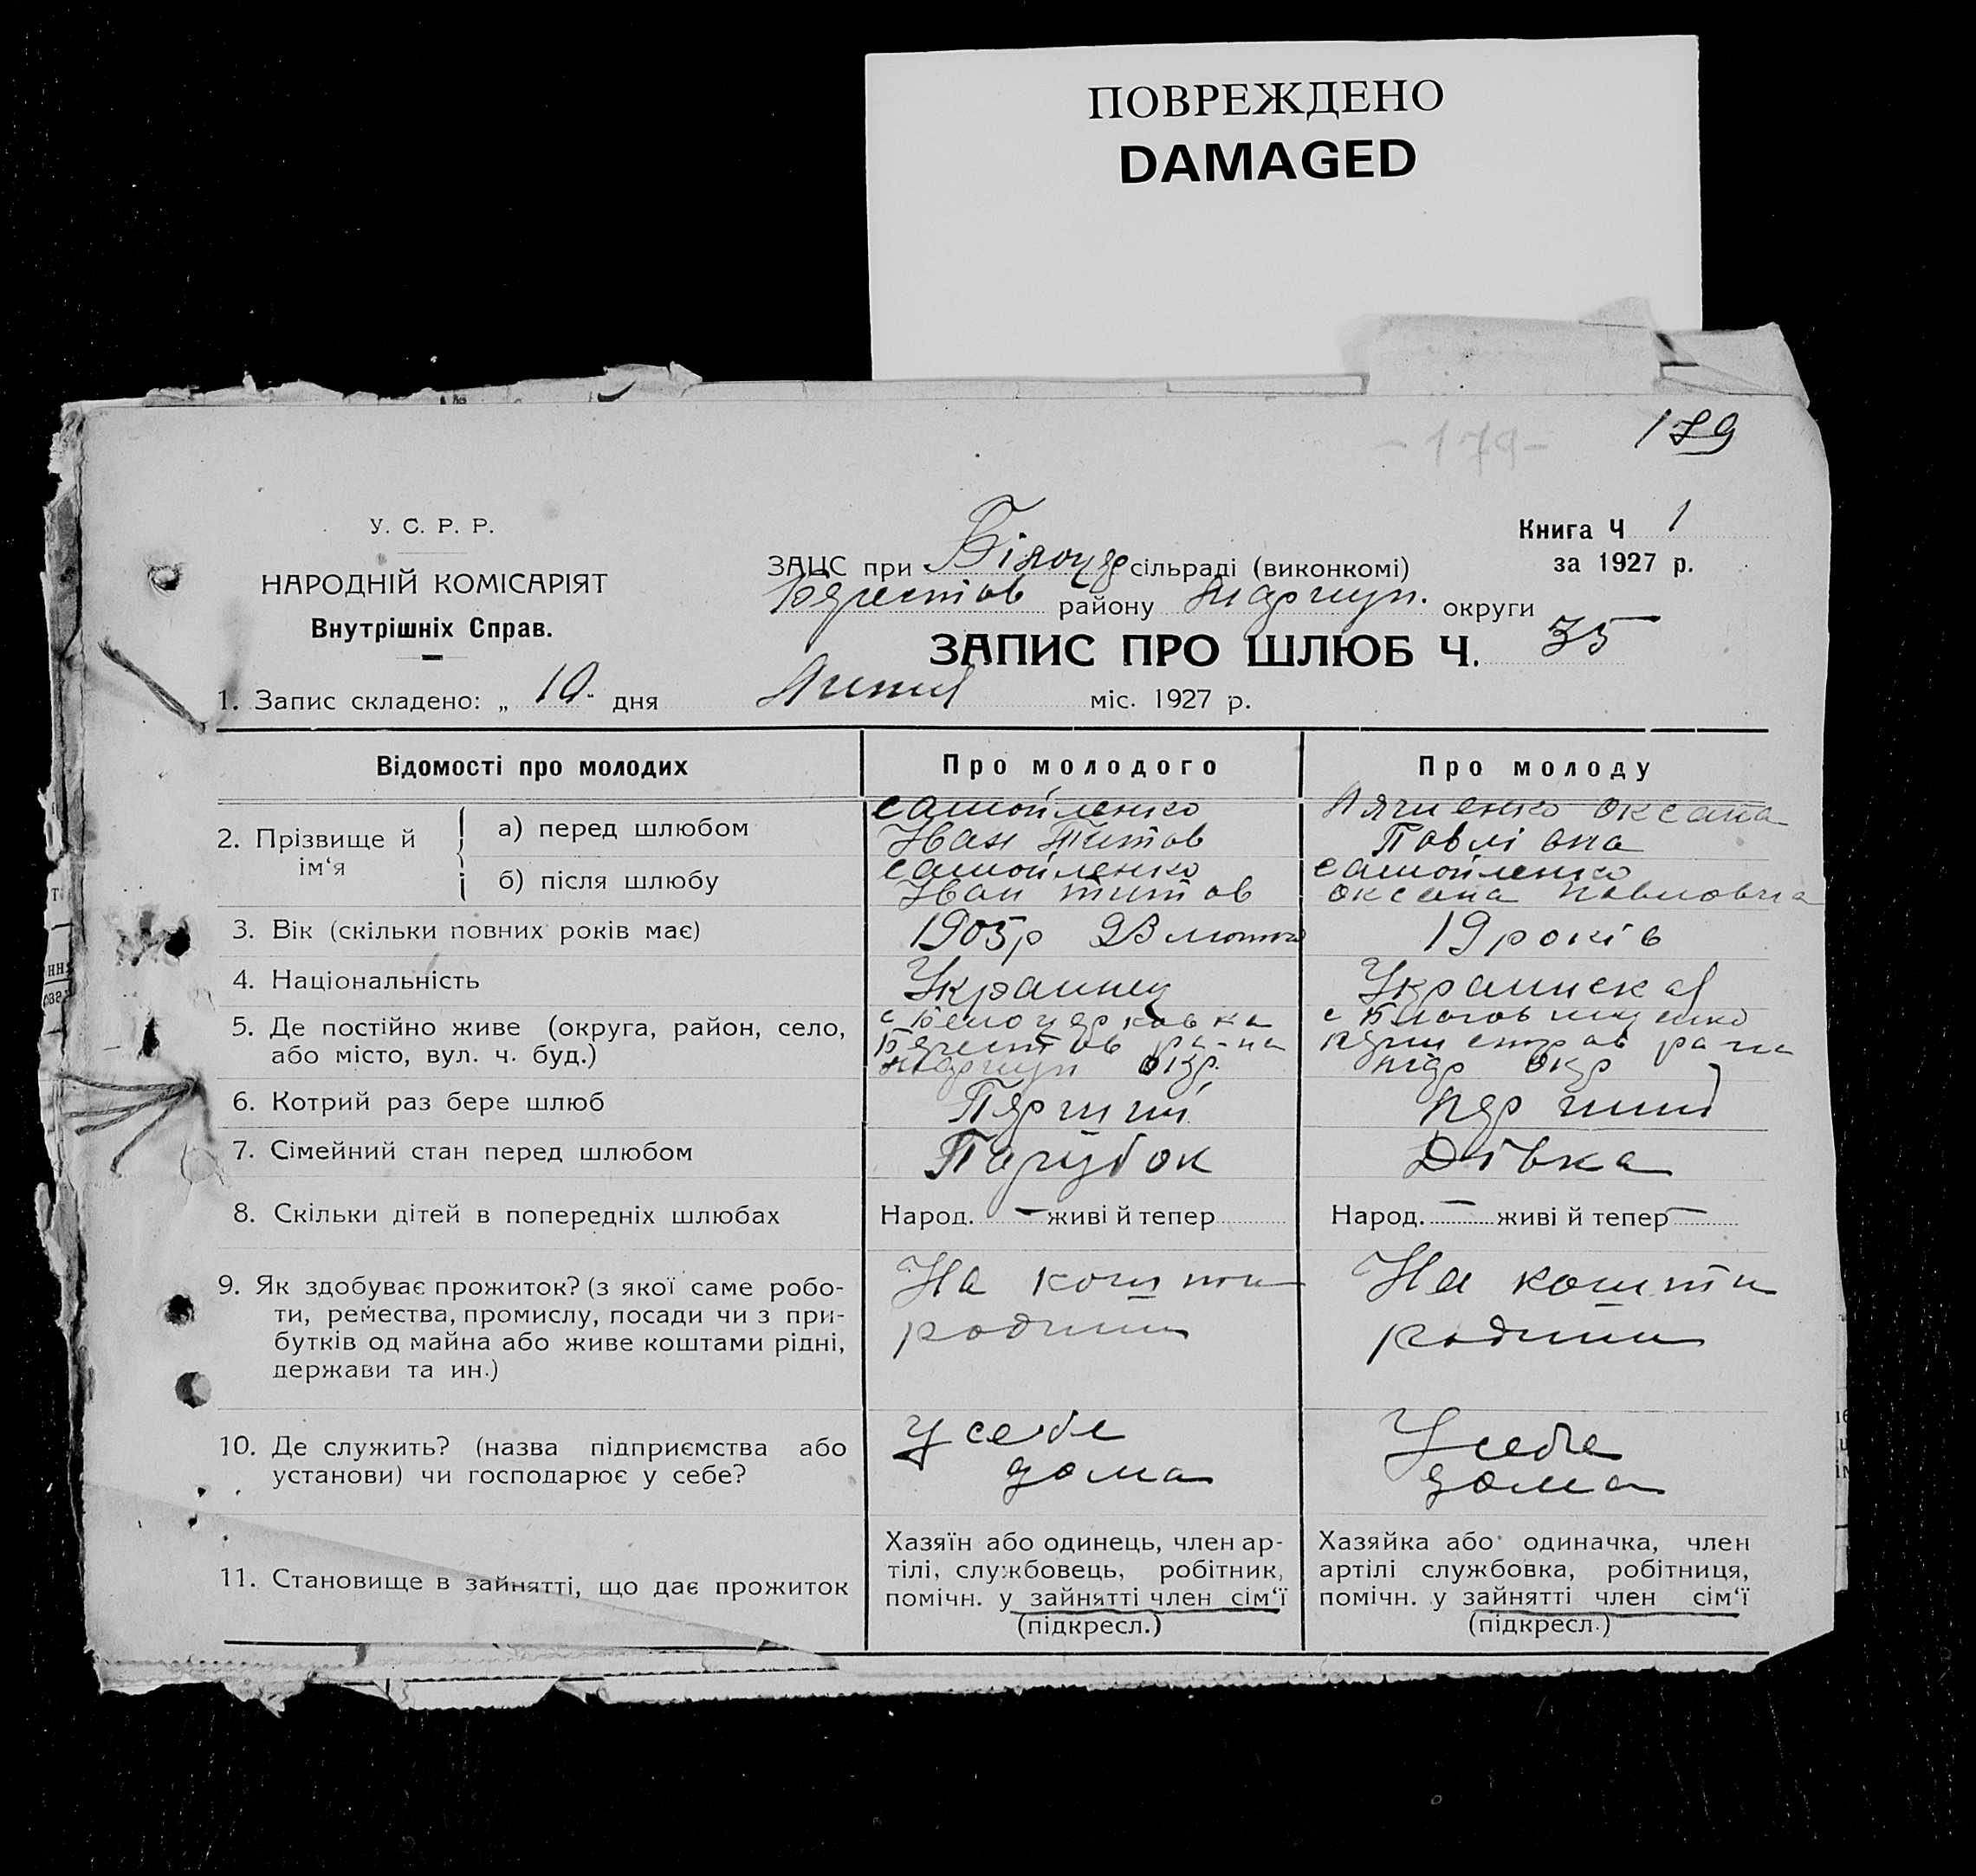 ПОВРЕЖДЕНО
DAMAGED
- 179 -
179
У. С. Р. Р.
НАРОДНІЙ КОМІСАРІЯТ
Внутрішніх Справ.
Книга Ч 1
за 1927 р.
ЗАЦС при Білоцер сільраді (виконкомі)
району округи
ЗАПИС ПРО ШЛЮБ Ч. 35
1. Запис складено: „ 10 дня Липня міс. 1927 р.
Відомості про молодих
Про молодого
Про молоду
2. Прізвище й ім‘я
а) перед шлюбом
самойленко
Иван Титов
Оксана
б) після шлюбу
самойленко
Иван титов
самойленко
оксана павловна
3. Вік (скільки повних років має)
1905р 23 лютого
19 років
4. Національність
Украинец
Украинская
5. Де постійно живе (округа, район, село,
або місто, вул. ч. буд.)
с Белоцерковка
ра-на
окр.
с
окр
6. Котрий раз бере шлюб
Перший
перший
7. Сімейний стан перед шлюбом
Парубок
Дівка
8. Скільки дітей в попередніх шлюбах
Народ. — живі й тепер
Народ. — живі й тепер —
9. Як здобуває прожиток? (з якої саме робо-
ти, ремества, промислу, посади чи з при-
бутків од майна або живе коштами рідні,
держави та ин.)
На кошти
родини
На кошти
родини
10. Де служить? (назва підприємства або
установи) чи господарює у себе?
У себе
дома
У себе
дома
11. Становище в зайнятті, що дає прожиток
Хазяїн або одинець, член ар-
тілі, службовець, робітник,
помічн. у зайнятті член сім‘ї
(підкресл.)
Хазяйка або одиначка, член
артілі службовка, робітниця,
помічн. у зайнятті член сім‘ї
(підкресл.)